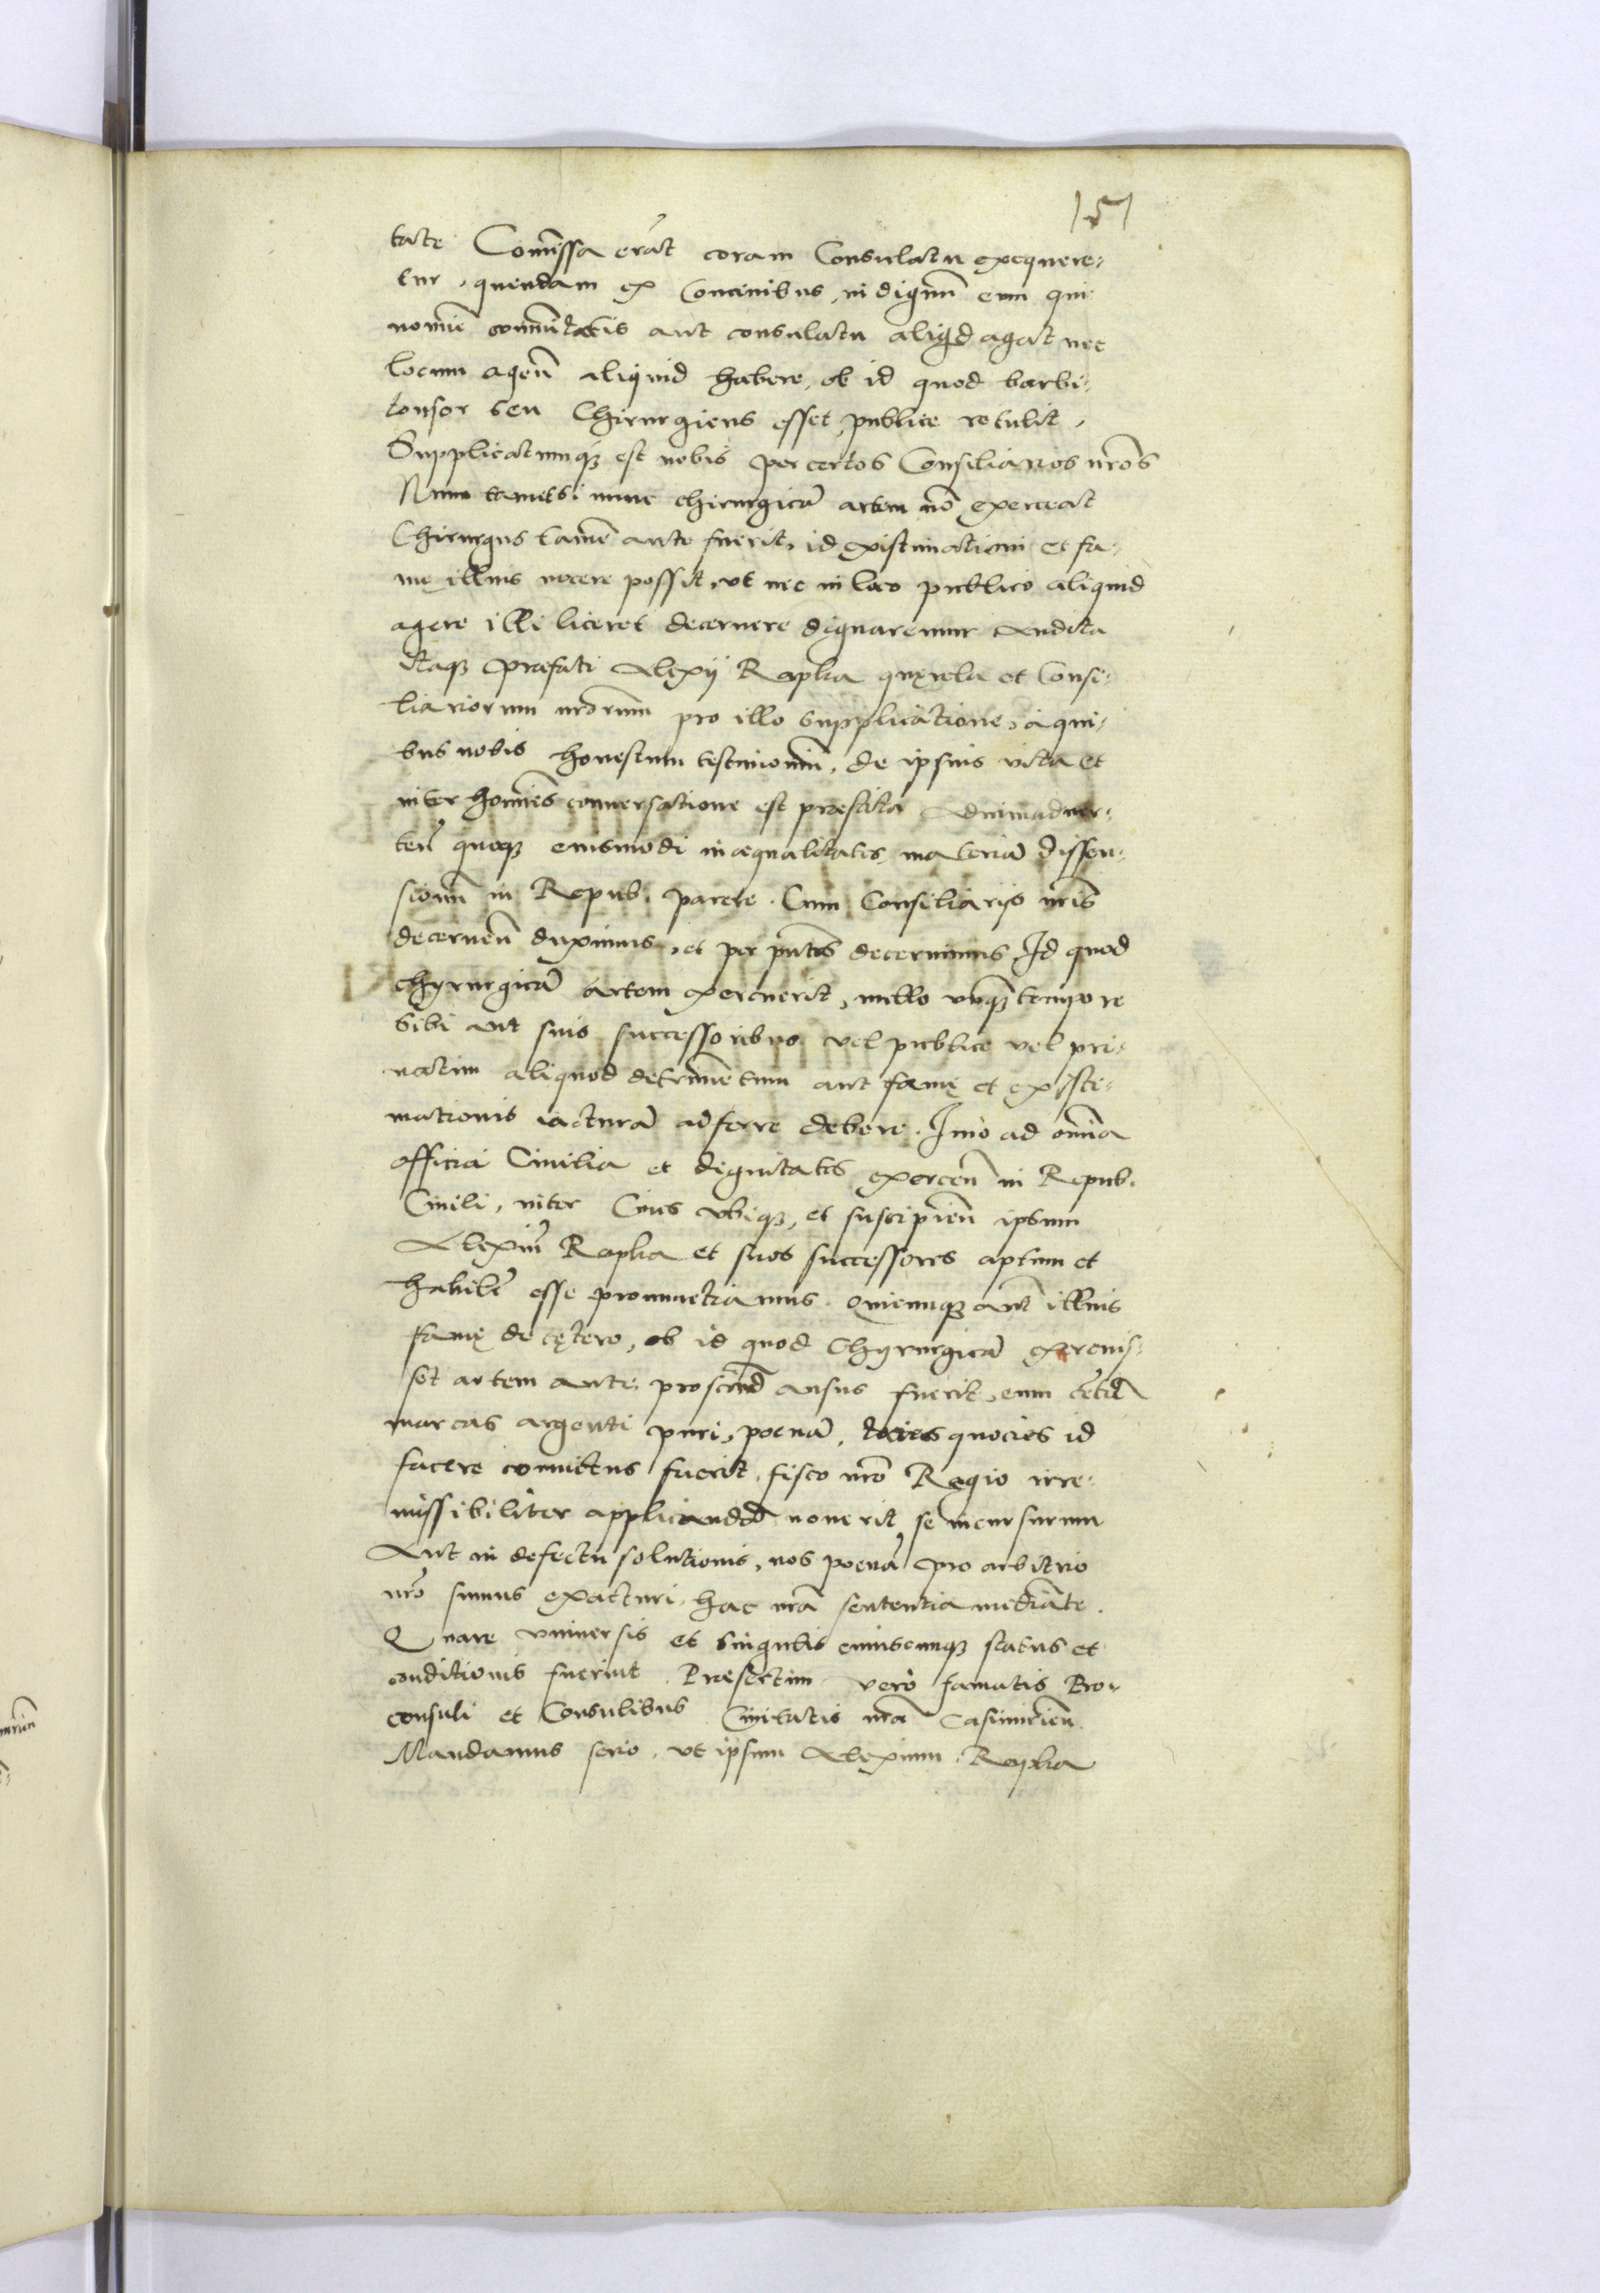 151
tate Comissa erat coram Consulatu exequere-
tur, quendam ex Conciuibus, indignũ eum qui
nomĩe comunitatis aut consulatu aliqd agat nec
locum agen̄ aliquid habere, ob id quod barbi-
tonsor seu Chirurgicus esset, publice retulit,
Supplicatumq; est nobis per certos Consiliarios nr̃os
Num tametsi nunc chirurgicã artem nõ exerceat
Chirurgus tamẽ ante fuerit, id existimationi et fa-
mę illius nocere possit, ut nec in loco publico aliquid
agere illi liceret decernere dignaremur Audita
itaq; præfati Alexij Rapka quęrela et Consi-
liariorum nr̃orum pro illo supplicatione, à qui-
bus nobis honestum testimoniũ, de ipsius vita et
inter homĩes conuersatione est præstita Animaduer-
ten̄ quoq; eiusmodi inæqualitatis, materiã dissen-
sionũ in Repub. parere. Cum Consiliarijs nr̃is
decernen̄ duximus, et per pñtes decernimus, Id quod
chyrurgicã artem exercuerit, nullo vnq̃ tempore
sibi aut suis successoribus vel publice vel pri-
uatim aliquod detrimẽtum aut famę et existi-
mationis iacturã adferre debere. Imò ad omĩa
officia Ciuilia et dignitates exercen̄ in Repub.
Ciuili, inter Ciues vbiq; et suscipien̄ ipsum
Alexiũ Rapka et suos successores aptum et
habilẽ esse pronunctiamus. Quicunq; aut̃ illius
famę de cętero, ob id quod Chyrurgicã exercuis-
set artem ante, proscind̃ ausus fuerit, eum
marcas argenti puri, poenã, toties quocies id
facere conuictus fuerit, fisco nr̃o Regio irre-
missibiliter applicand̃ nouerit se incursurum
Aut in defectu solutionis, nos poenã pro arbitrio
nr̃o simus exacturi, hac nr̃a sententia mediãte.
Quare vniuersis et singulis cuiuscunq; status et
conditionis fuerint. Præsertim verò famatis Pro-
consuli et Consulibus Ciuitatis nr̃a Casimirien̄.
Mandamus serio, vt ipsum Alexium Rapka